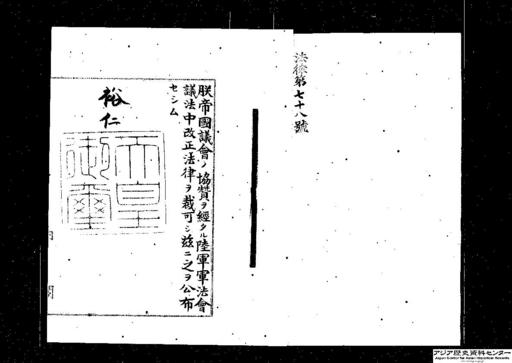 法律第七十八號
朕帝國議會ノ協贊ヲ經タル陸軍軍法會
議法中改正法律ヲ裁可シ茲ニ之ヲ公布
セシム
裕仁
天皇
御璽
アジア歴史資料センター
Japan Center for Asian Historical Records